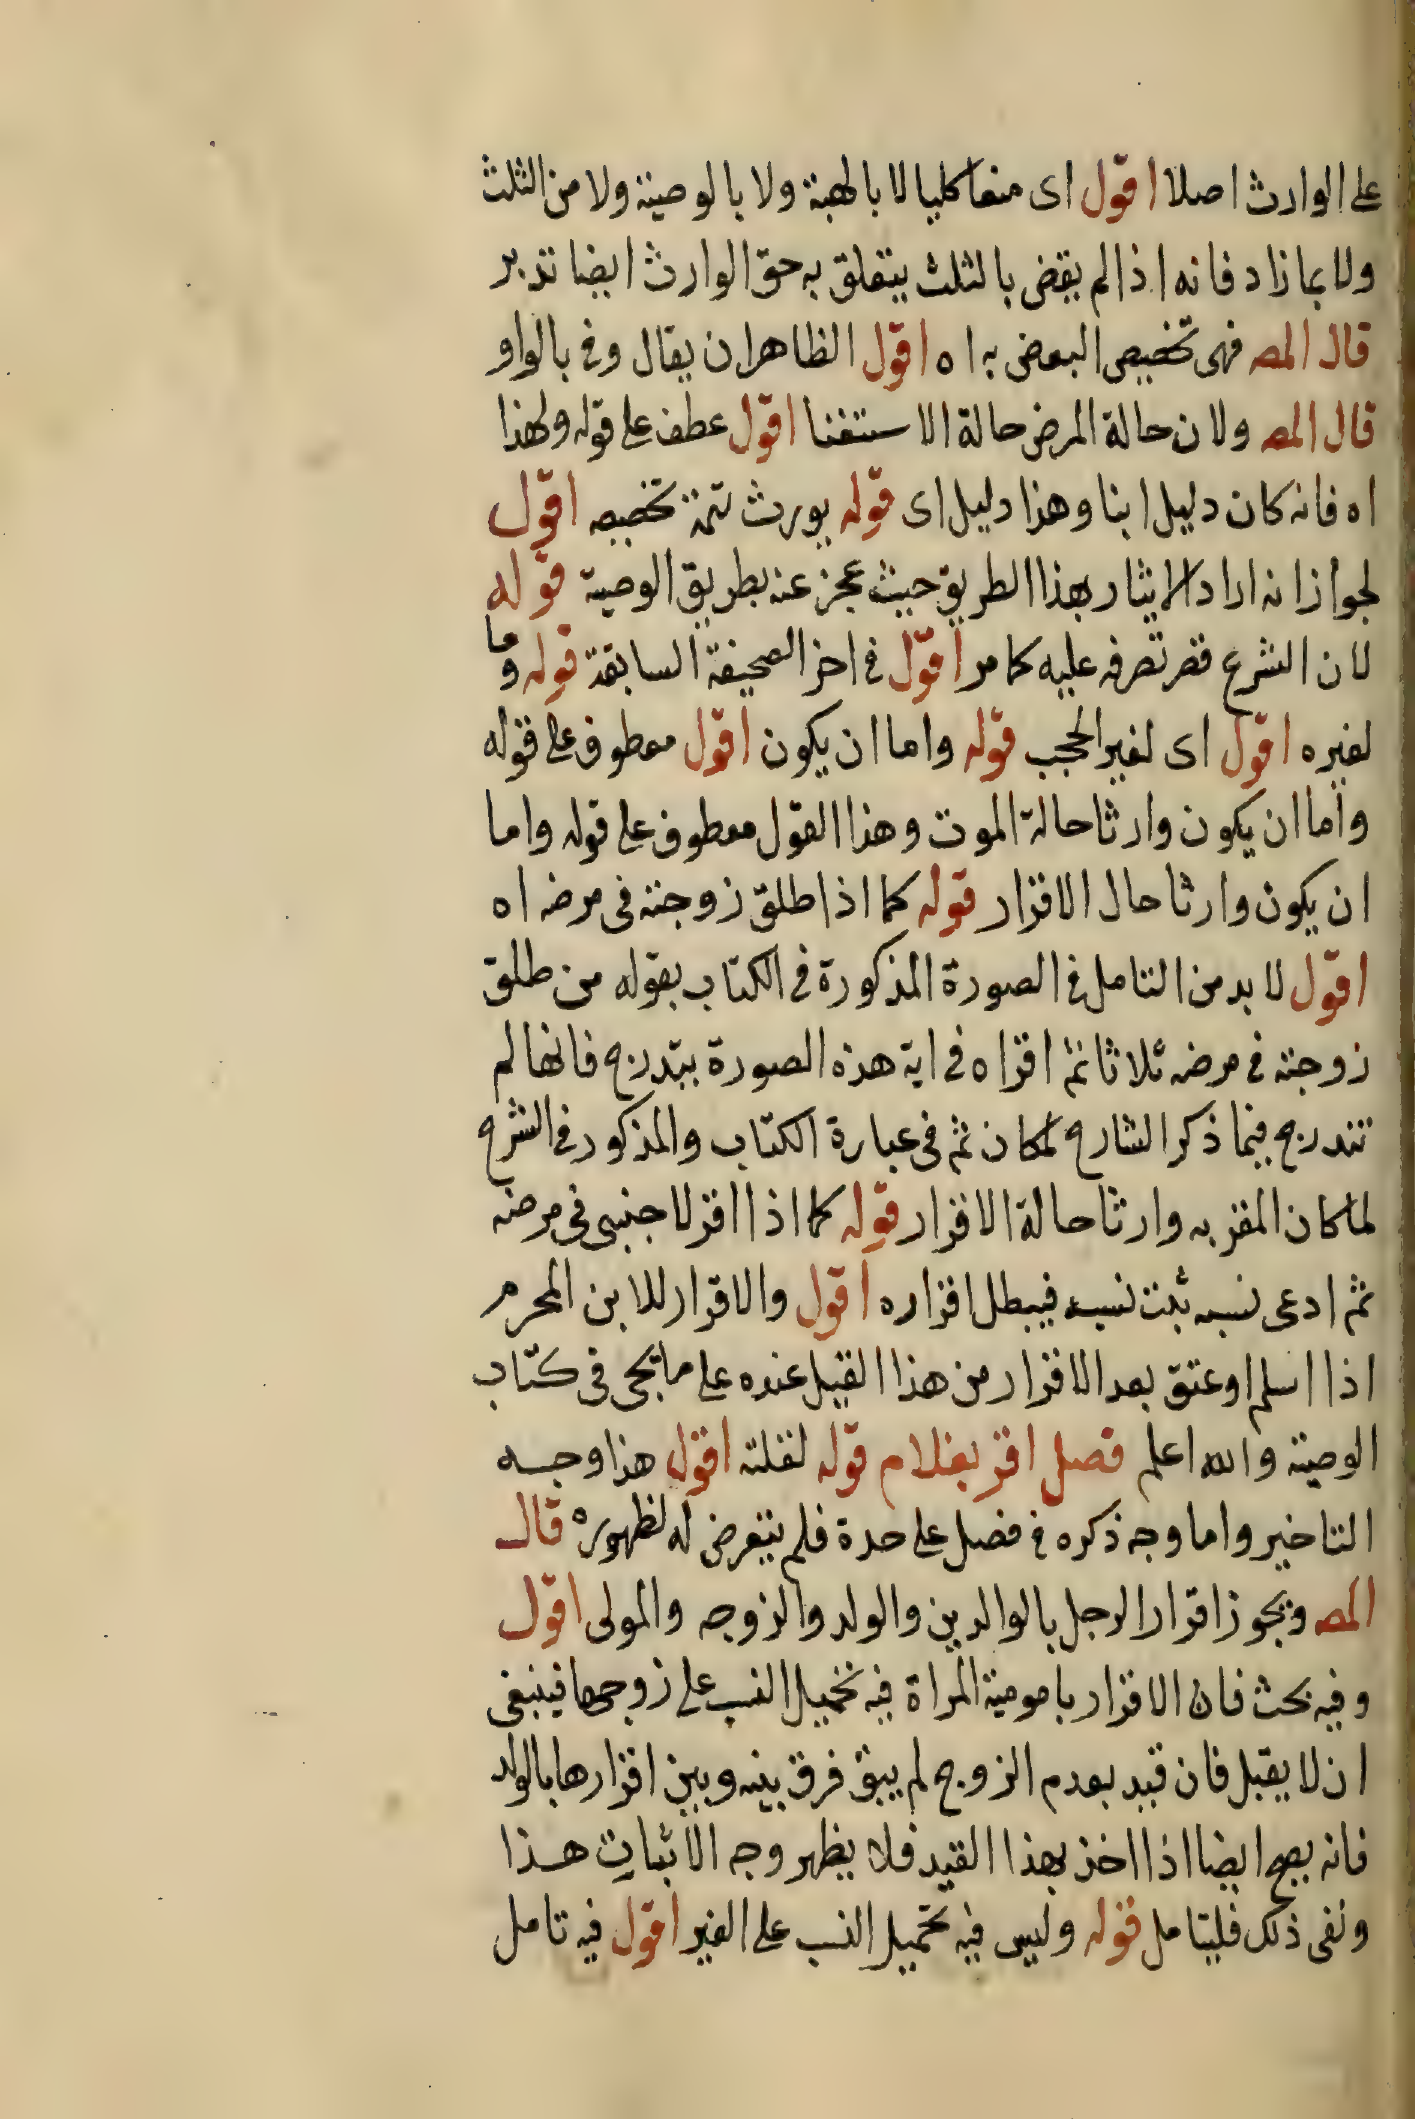 على الوارث اصلا اقول اى منعا كليا لا بالهبة ولا بالوصية ولا من الثلث
ولا بما زاد فانه اذا لم يقض بالثلث يتعلق به حق الوارث ايضا تدبر
قال المص فهى تخصيص البعض به اه اقول الظاهر ان يقال وفى بالواو
قال المص ولان حالة المرض حالة الاستغنا اقول عطف على قوله ولهذا
اه فانه كان دليل ابنا وهذا دليل اى قوله يورث تتمة تخصيصه اقول
لجواز انه اراد الايثار بهذا الطريق حيث عجز عنه بطريق الوصية قوله
لان الشرع قصر تصرفه عليه كما مر اقول فى اخر الصحيفة السابقة قوله وما
لغيره اقول اى لغير الحجب قوله واما ان يكون اقول معطوف على قوله
واما ان يكون وارثا حالة الموت وهذا القول معطوف على قوله واما
ان يكون وارثا حال الاقرار قوله كما اذا طلق زوجته فى مرضه اه
اقول لا بد من التامل فى الصورة المذكورة فى الكتاب بقوله من طلق
زوجته فى مرضه ثلاثا ثم اقر اه فى اية هذه الصورة يتدرج فانها لم
تندرج فيما ذكر الشارح لمكان ثم فى عبارة الكتاب والمذكور فى الشرح
لما كان المقر به وارثا حالة الاقرار قوله كما اذا اقر لاجنبى فى مرضه
ثم ادعى نسبه ثبت نسبه فيبطل اقراره اقول والاقرار للابن المحرم
اذا اسلم او عتق بعد الاقرار من هذا القبيل عنده على ما يجى فى كتاب
الوصية والله اعلم فصل اقر بغلام قوله لقلته اقول هذا وجه
التاخير واما وجه ذكره فى فصل على حدة فلم يتعرض له لظهوره قال
المص ويجوز اقرار الرجل بالوالدين والولد والزوجه والمولى اقول
وفيه بحث فان الاقرار بامومية المراة فيه تحميل النسب على زوجها فينبغى
ان لا يقبل فان قيد بعدم الزوج لم يبق فرق بينه وبين اقرارها بالولد
فانه يصح ايضا اذا اخذ بهذا القيد فلا يظهر وجه الاثبات هذا
ونفى ذلك فليتامل قوله وليس فيه تحميل النسب على الغير اقول فيه تامل